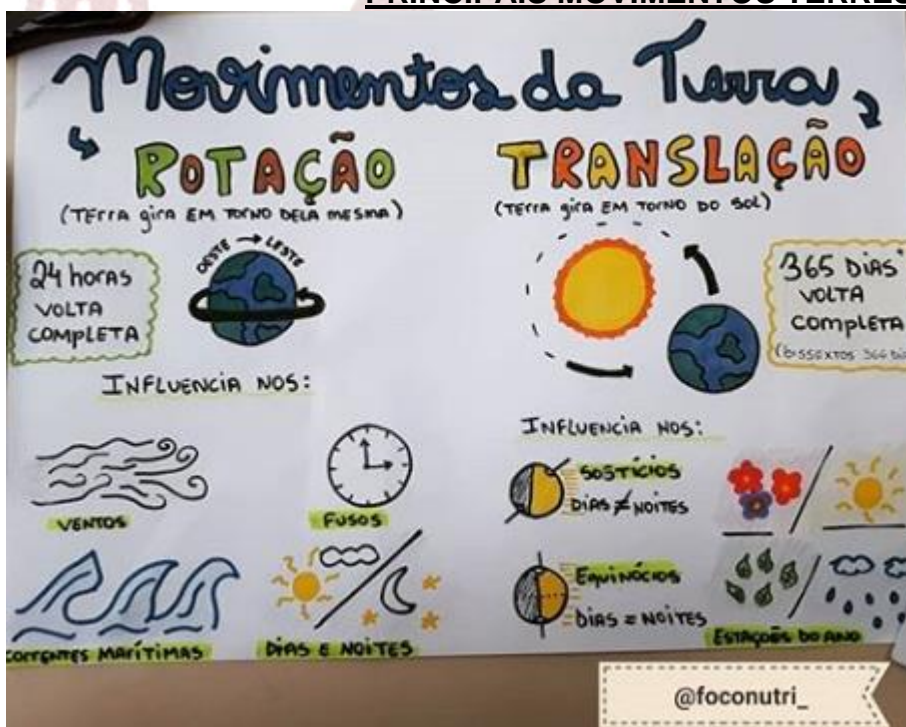 PRINCIPAIS MOVIMENTOS TERRES
Movimentos da Terra
ROTAÇÃO
(TERRA gira EM TORNO DELA MESMA)
OESTE → LESTE
24 horas
VOLTA
COMPLETA
INFLUENCIA NOS:
VENTOS
FUSOS
CORRENTES MARÍTIMAS
DIAS E NOITES
TRANSLAÇÃO
(TERRA gira EM TORNO DO SOL)
365 DIAS
VOLTA
COMPLETA
(BISSEXTOS 366
INFLUENCIA NOS:
SOSTÍCIOS
DIAS ≠ NOITES
EQUINÓCIOS
DIAS = NOITES
ESTAÇÕES DO ANO
@foconutri_